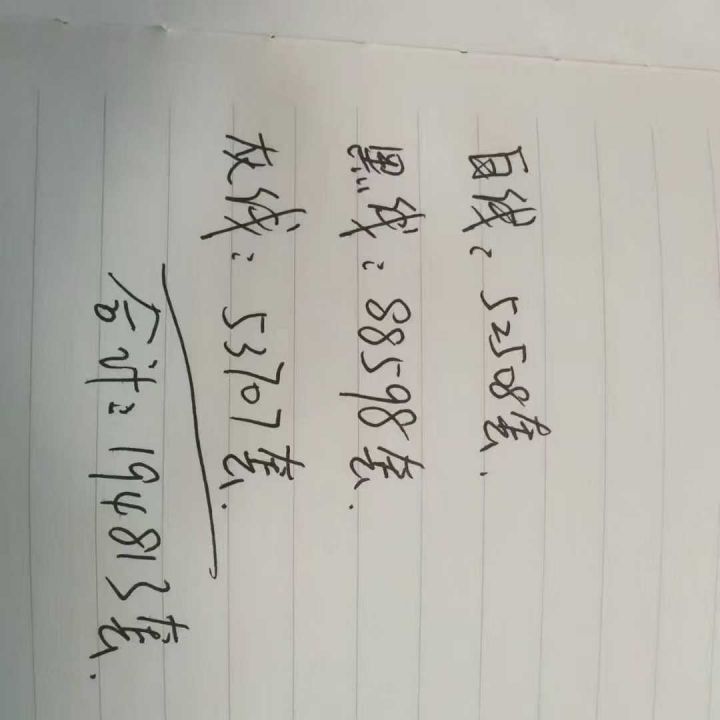 白线：52508套.
黑线：88598套.
灰线：53707套.
合计：194813套.